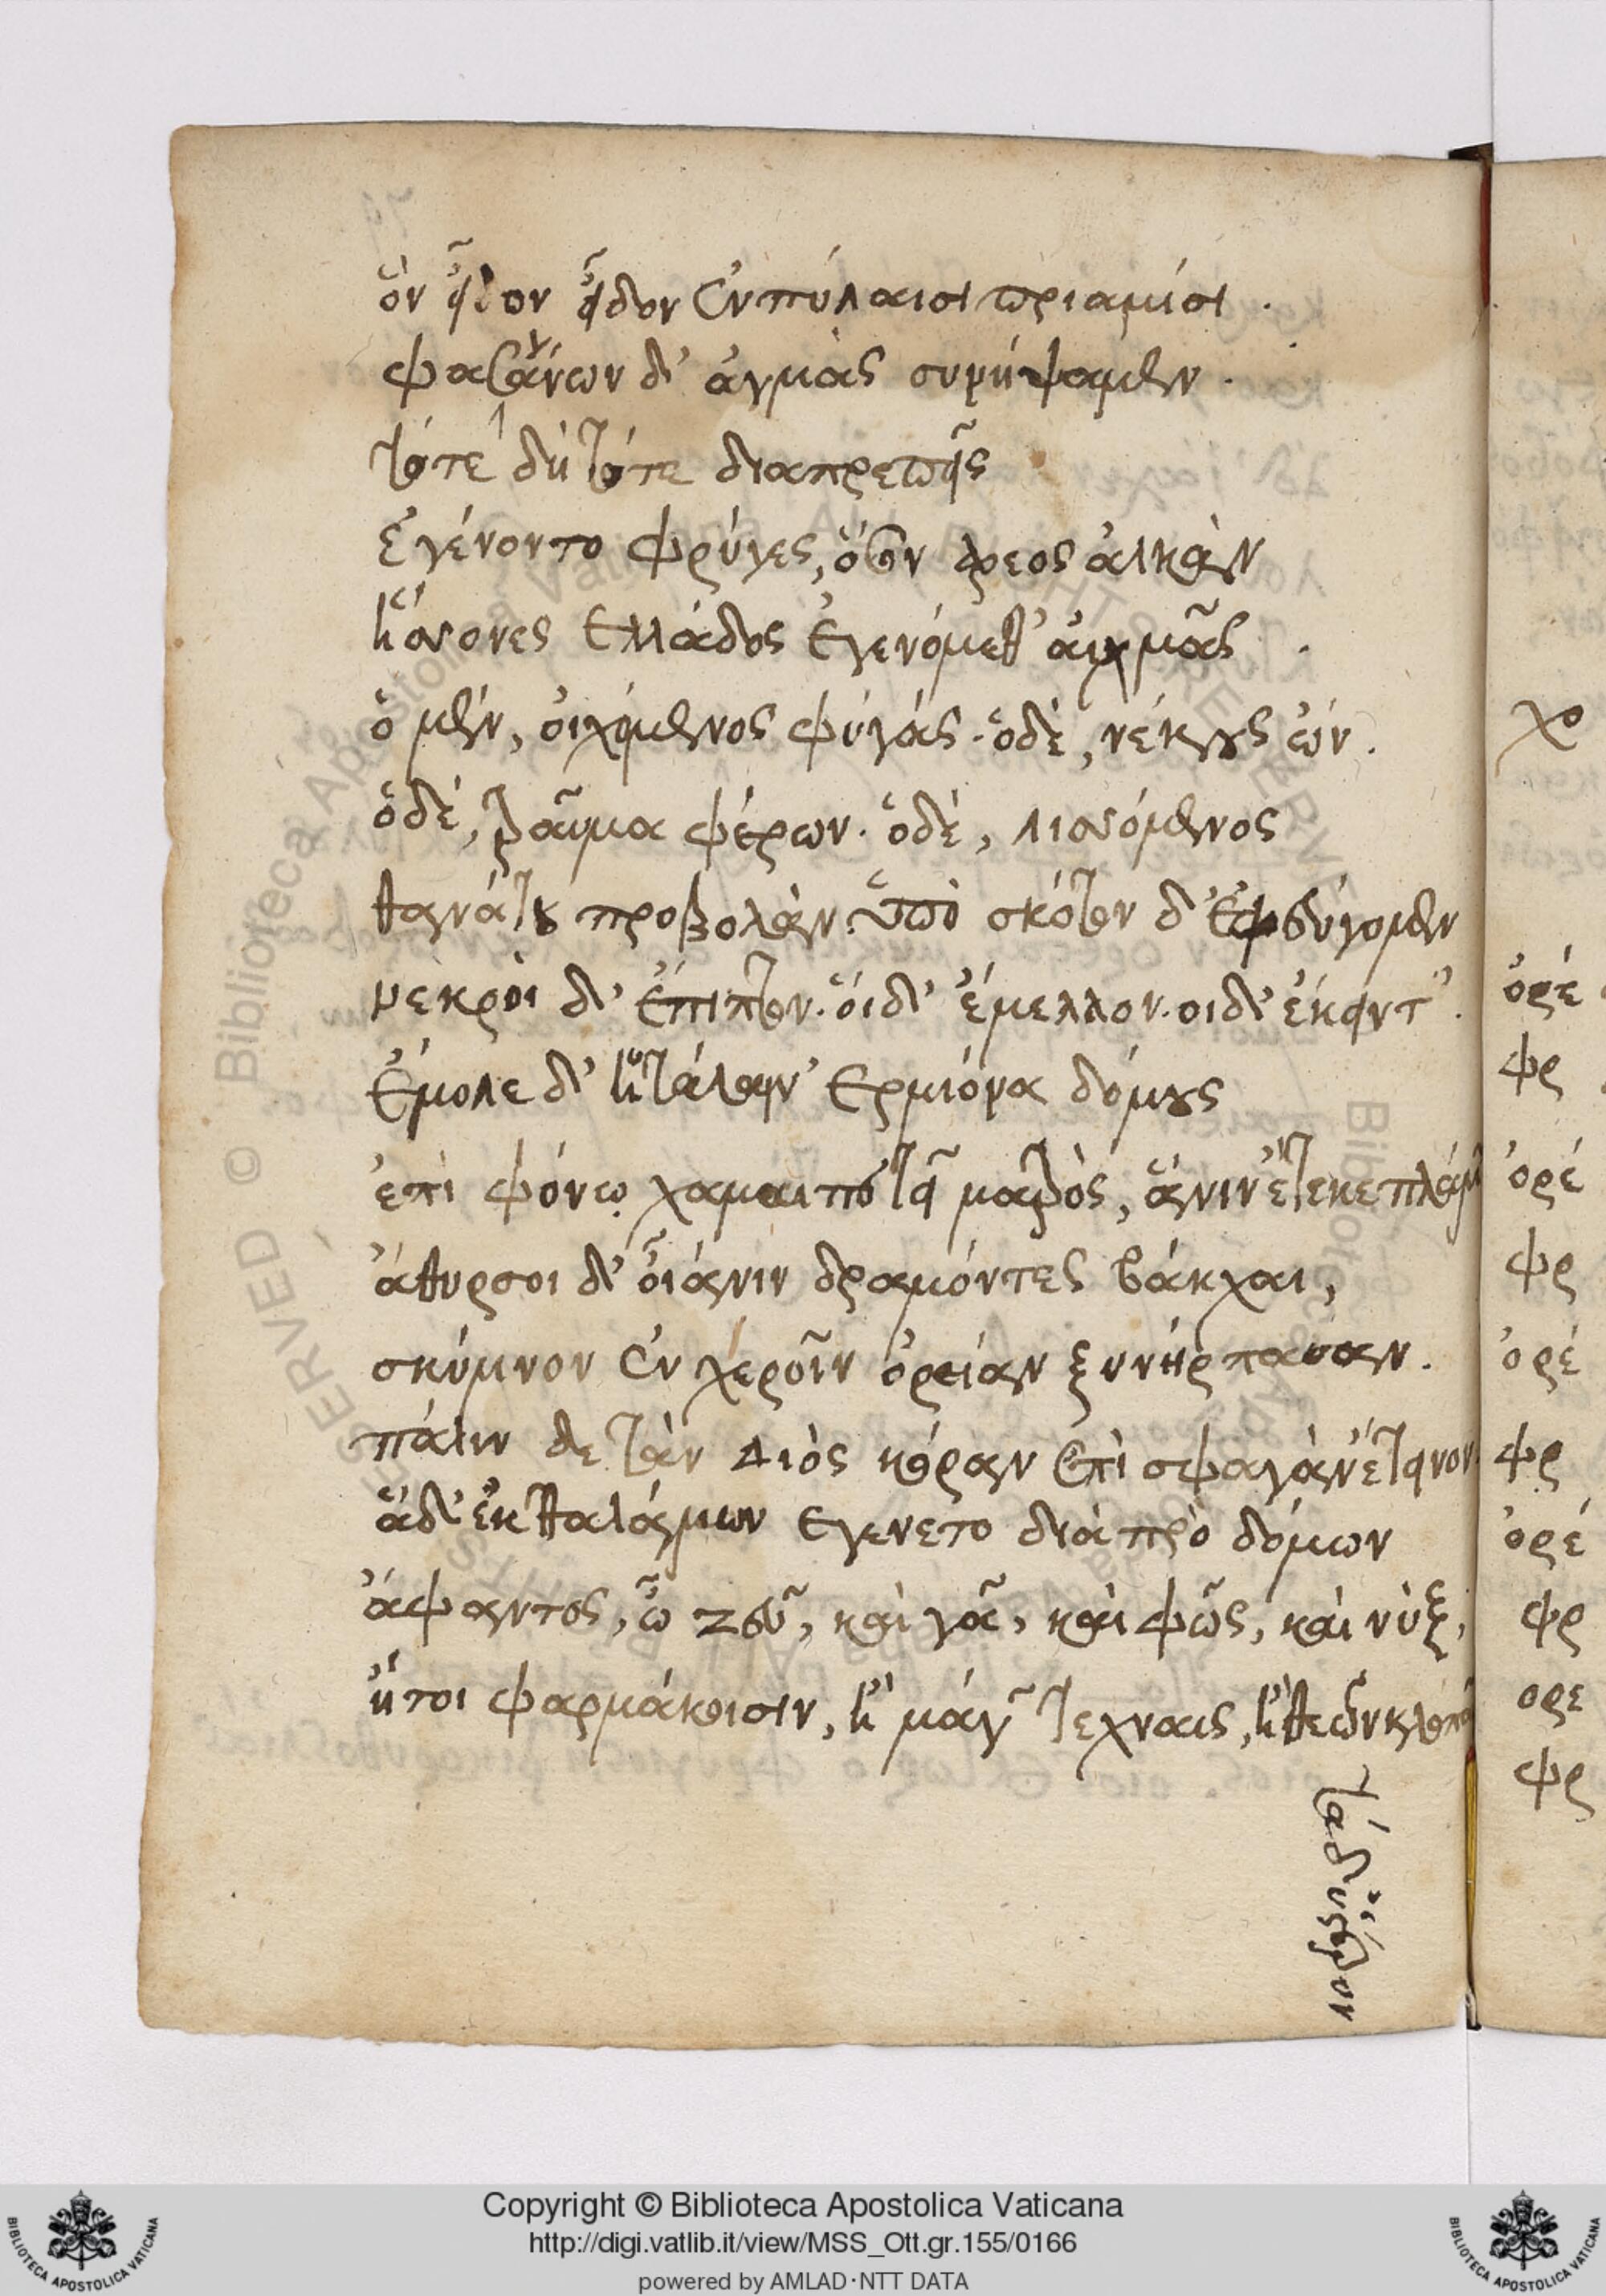 ὃν εἶδον εἶδον ἐν πύλαισι πριαμίσι.
φασγάνων δ' ἀγμὰς συνήψαμεν.
τότε δὴ τότε διαπρεπεῖς
ἐγένοντο φρύγες, ὅσον ἄρεος ἀλκὰν
ἥσσονες Ελλάδος ἐγενόμεθ' αἰχμᾶς.
ὁ μὲν, οἰχόμενος φυγάς. ὁδὲ, νέκυς ὤν.
ὁδέ, τραῦμα φέρων. ὁδὲ, λισσόμενος
θανάτου προβολὰν. ὑπὸ σκότον δ' ἐφεύγομεν
νεκροὶ δ' ἔπιπτον. οἱδ' έμελλον. οιδ' έκειντ'.
ἔμολε δ' ἡ τάλαιν' Ερμιόνα δόμους
ἐπὶ φόνω χαμαιπετεῖ ματρὸς, ἅ νιν ἔτεκε τλάμ
άθυρσοι δ' οἷά νιν δραμόντες βάκχαι,
σκύμνον ἐν χεροῖν ὀρείαν ξυνήρπασαν.
πάλιν δε τὰν Διὸς κόραν ἐπὶ σφαγὰν έτεινον
ἁ δ' ἐκ θαλάμων εγενετο διὰ πρὸ δόμων
άφαντος, ὦ ζεῦ, καὶ γᾶ, καὶ φῶς, καὶ νὺξ,
ἤτοι φαρμάκοισιν, ἢ μάγων τεχναις, ἢ θεῶν κλοπαῖς
τὰ δ' ὕστερον
χο
ὀρέ
φρ
ὀρέ
φρ
ὀρέ
φρ
ὀρέ
φρ
ορε
φρ
Copyright © Biblioteca Apostolica Vaticana
http://digi.vatlib.it/view/MSS_Ott.gr.155/0166
powered by AMLAD·NTT DATA